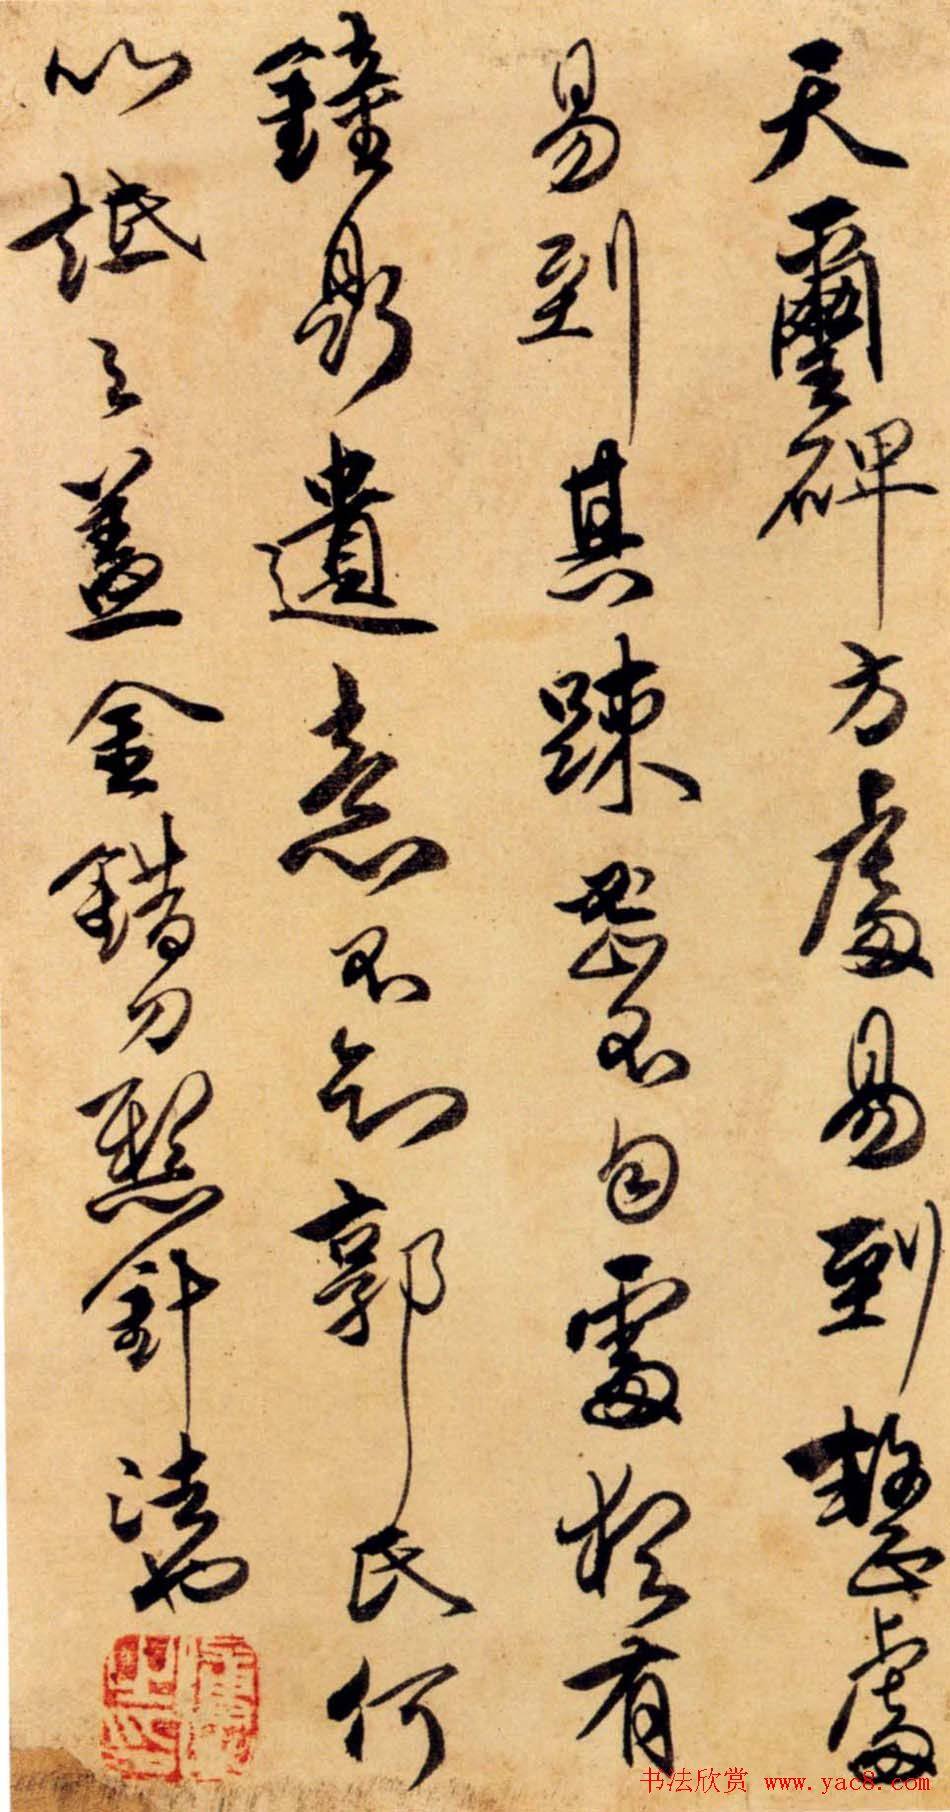 天璽碑方處易到整處
易到其踈密不匀處猶有
鐘鼎遺意不知郭氏何
以詆之蓋金錯刀懸針法也
书法欣赏 www.yac8.com